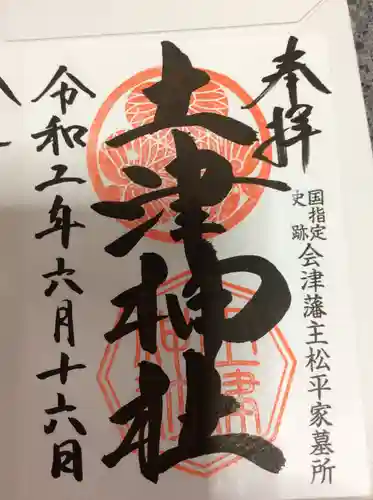 奉拝
国指定
史跡
会津藩主松平家墓所
土津神社
令和二年六月十六日